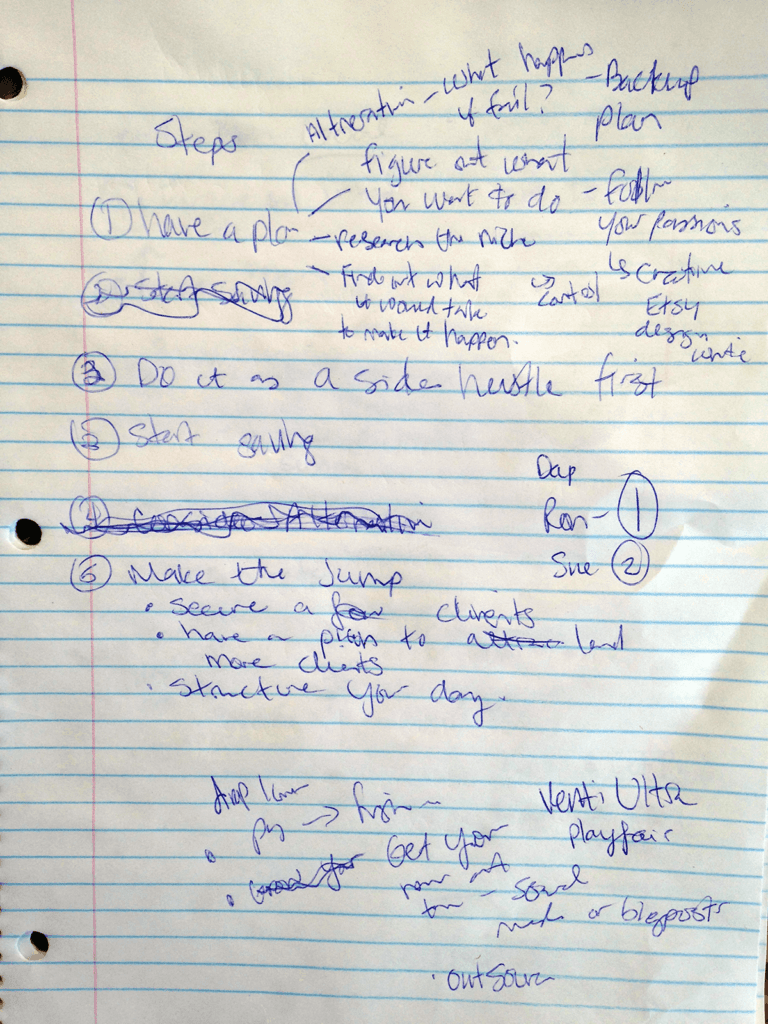 Alternation - What happens
if fail?
- Backup
plan
Steps
figure out what
you want to do - follow
your passions
↳ Creative
Etsy
design
write
① have a plan
- research the niche
- Find out what
it would take
to make it happen.
② Start Saving
③ Do it as a side hustle first
Start saving
Day
Ron - ①
Sue ②
⑤ Make the Jump
• secure a few clients
• have a plan to land
more clients
• Structure your day.
Venti Ultra
Playfair
• pay →
• Get your
name out
- Social
or blogposts
• outsource